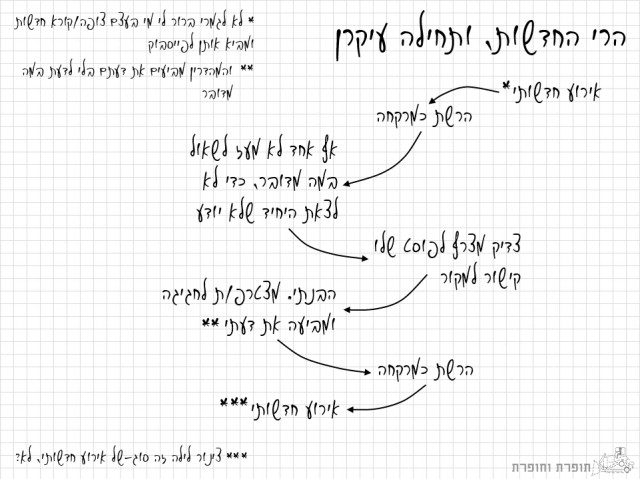 הרי החדשות, ותחילה עיקרן
* לא לגמרי ברור לי מי בעצם צופה/קורא חדשות
ומביא אותן לפייסבוק
** והמהדרין מביעים את דעתם בלי לדעת במה
מדובר
אירוע חדשותי*
הרשת כמרקחה
אף אחד לא מעז לשאול
במה מדובר, כדי לא
לצאת היחיד שלא יודע
צדיק מצרף לפוסט שלו
קישור למקור
הבנתי. מצטרפות לחגיגה
ומביעה את דעתי **
הרשת כמרקחה
אירוע חדשותי ***
*** צינור לילה זה סוג-של אירוע חדשותי, לא?
תופרת וחופרת